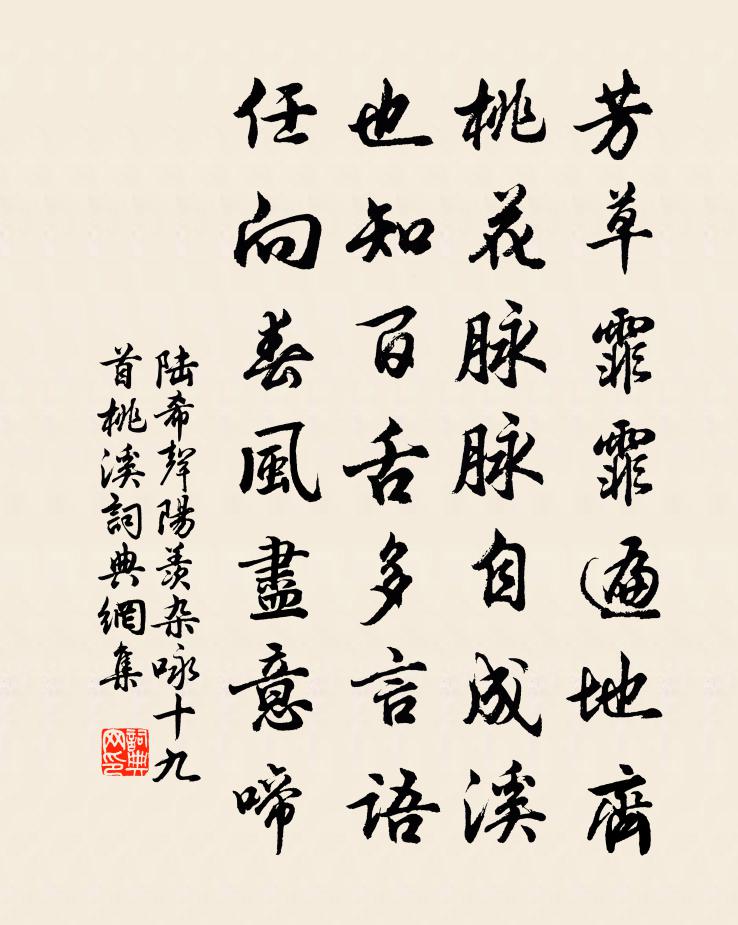 芳草霏霏遍地齊
桃花脉脉自成溪
也知百舌多言語
任向春風盡意啼
陆希聲陽羨杂咏十九
首桃溪詞典網集
詞典
网印